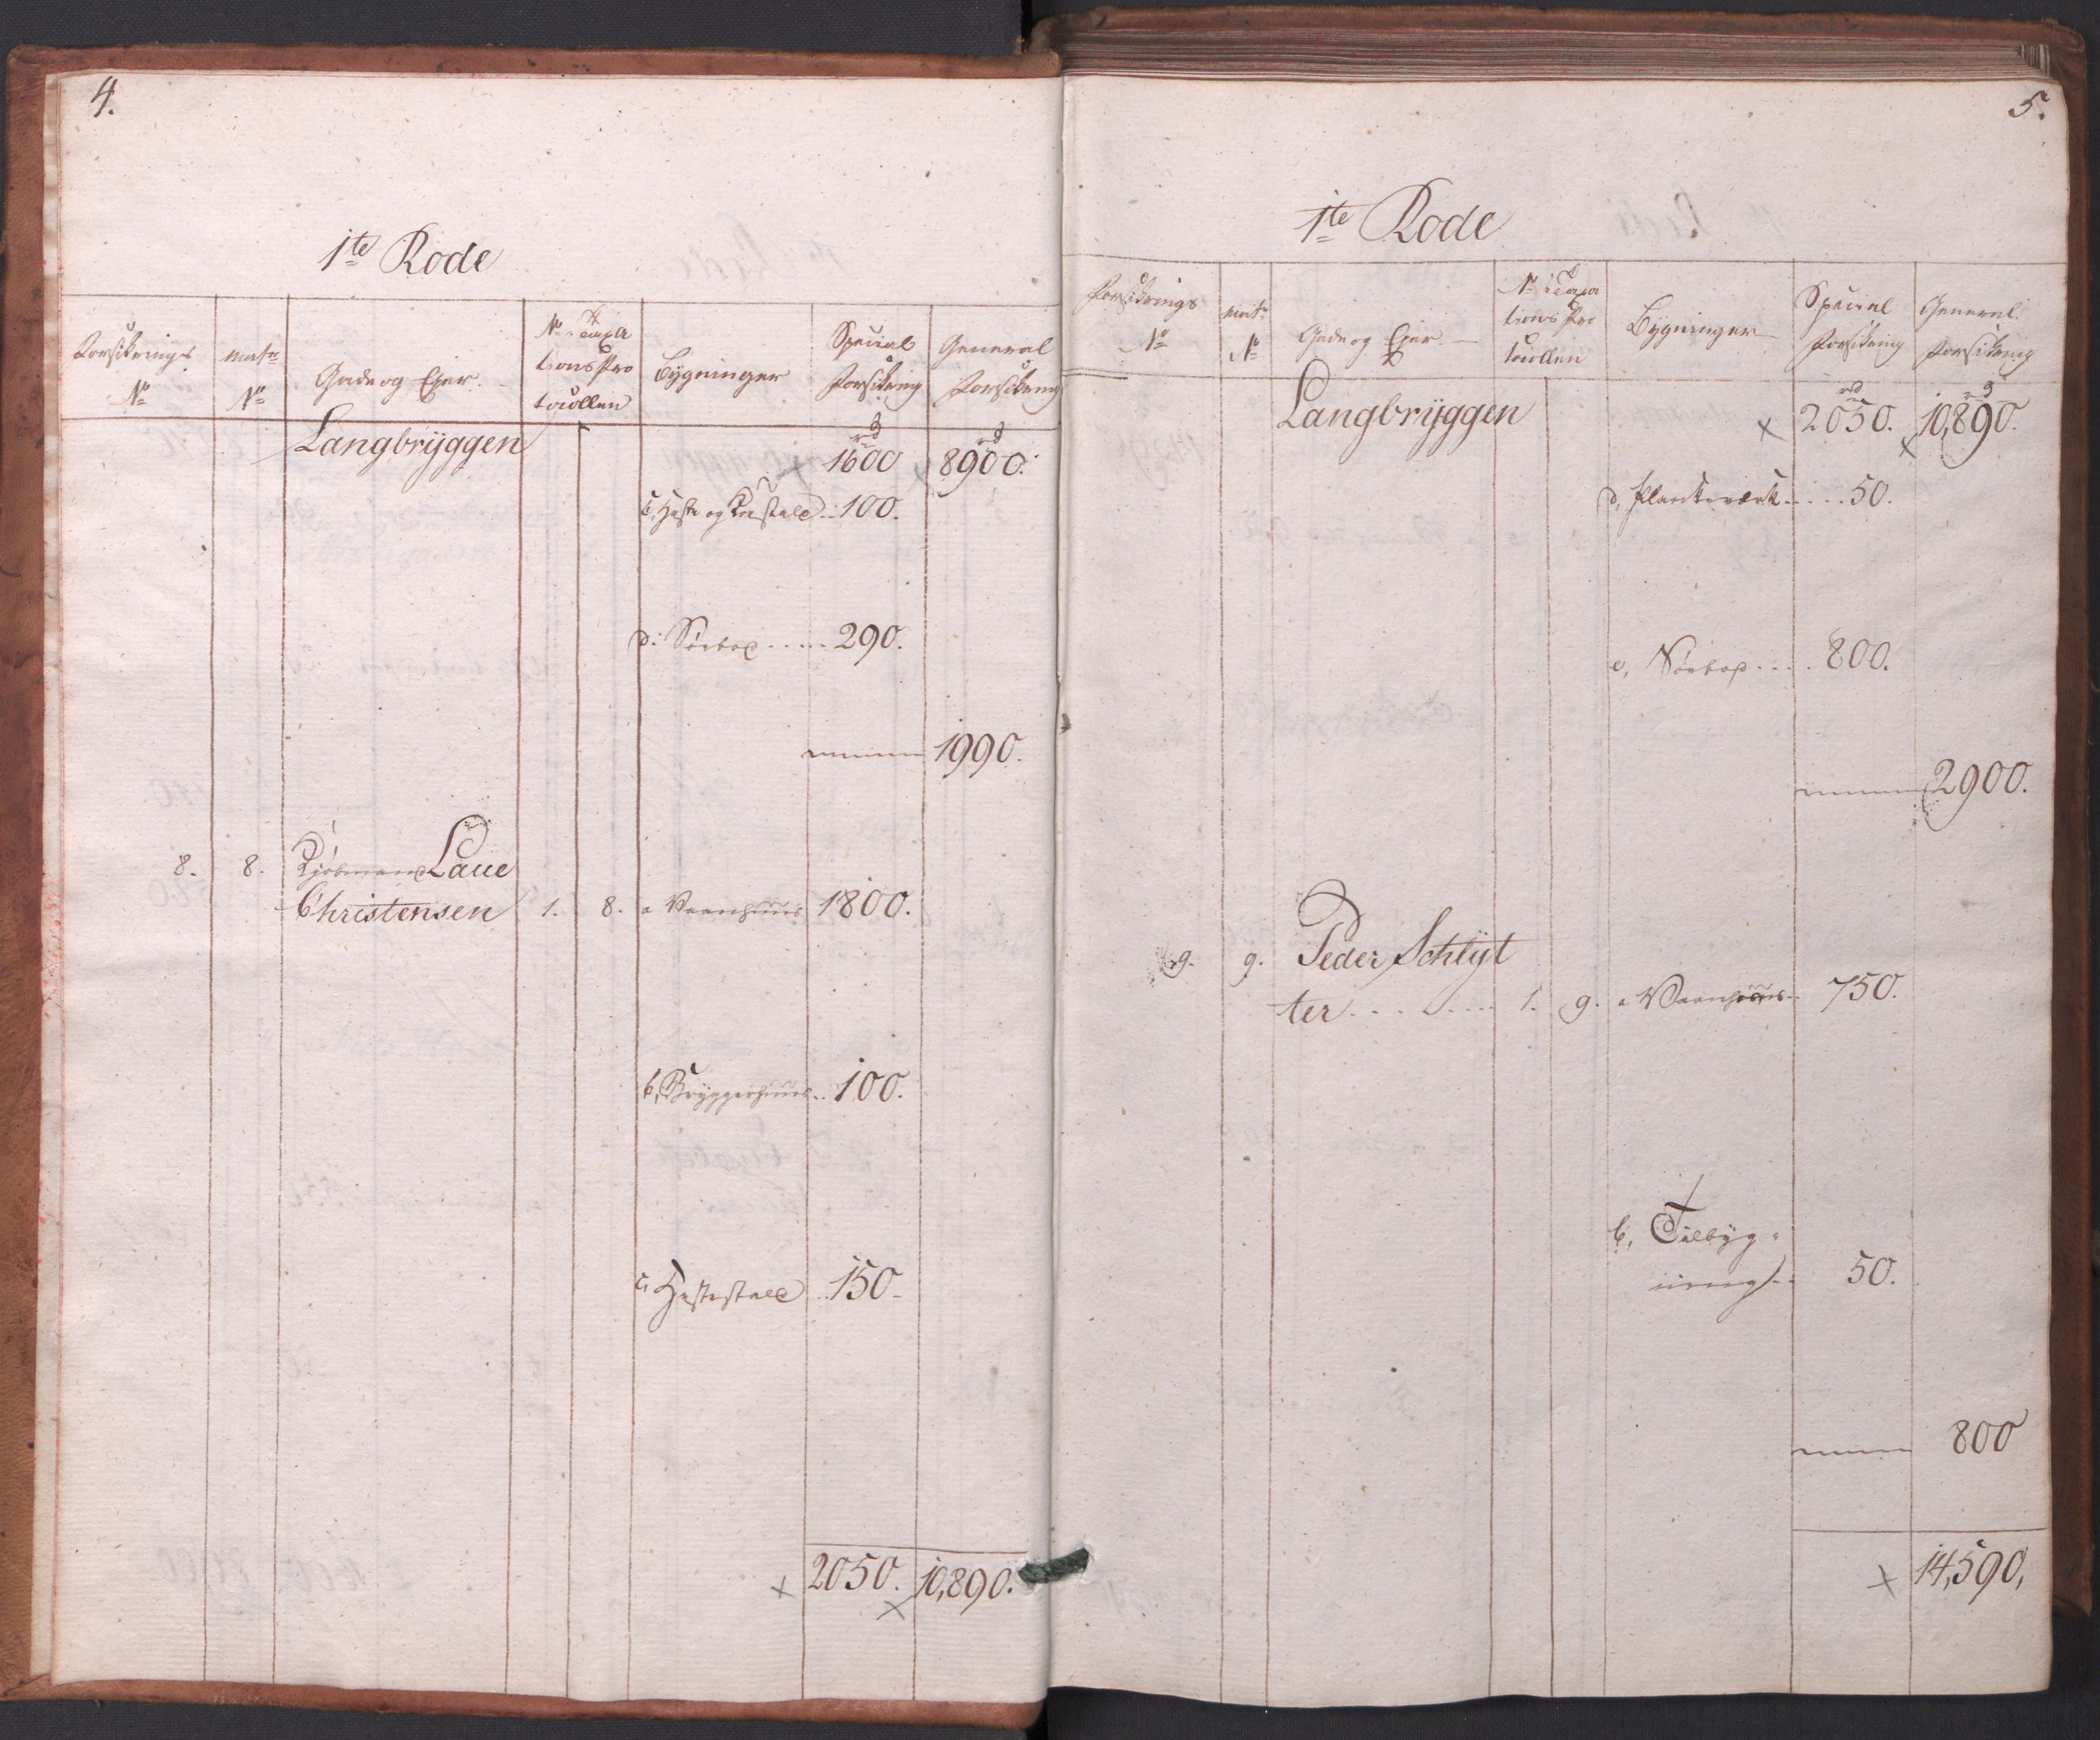 4.
1te Rode
Forsikrings No
Matr. No
Gade og Ejer.
No i Taxa
tions Pro
tocollen
Bygninger
Special Forsikring
General Forsikring
Langbryggen
rd rd
1600 8900.
c, Heste og Koestald .. 100.
d. Søebod ..... 290.
1990.
8. 8. Kjøbmand Laue
Christensen 1. 8. a Vaanhuus 1800.
b, Bryggerhuus .. 100.
c, Hestestald .. 150.
2050. 10,890.
5.
1te Rode
Forsikrings No
Matr. No
Gade og Ejer.
No i Taxa
tions Pro
tocollen
Bygninger
Special Forsikring
General Forsikring
Langbryggen
rd rd
2050. 10,890.
d, Plankeværk .... 50.
e, Søebod .... 800.
2900.
9. 9. Peder Schlyt
ter ........ 1. 9. a Vaanhuus .. 750.
b, Tilbyg-
ning .. 50.
800
14,590,